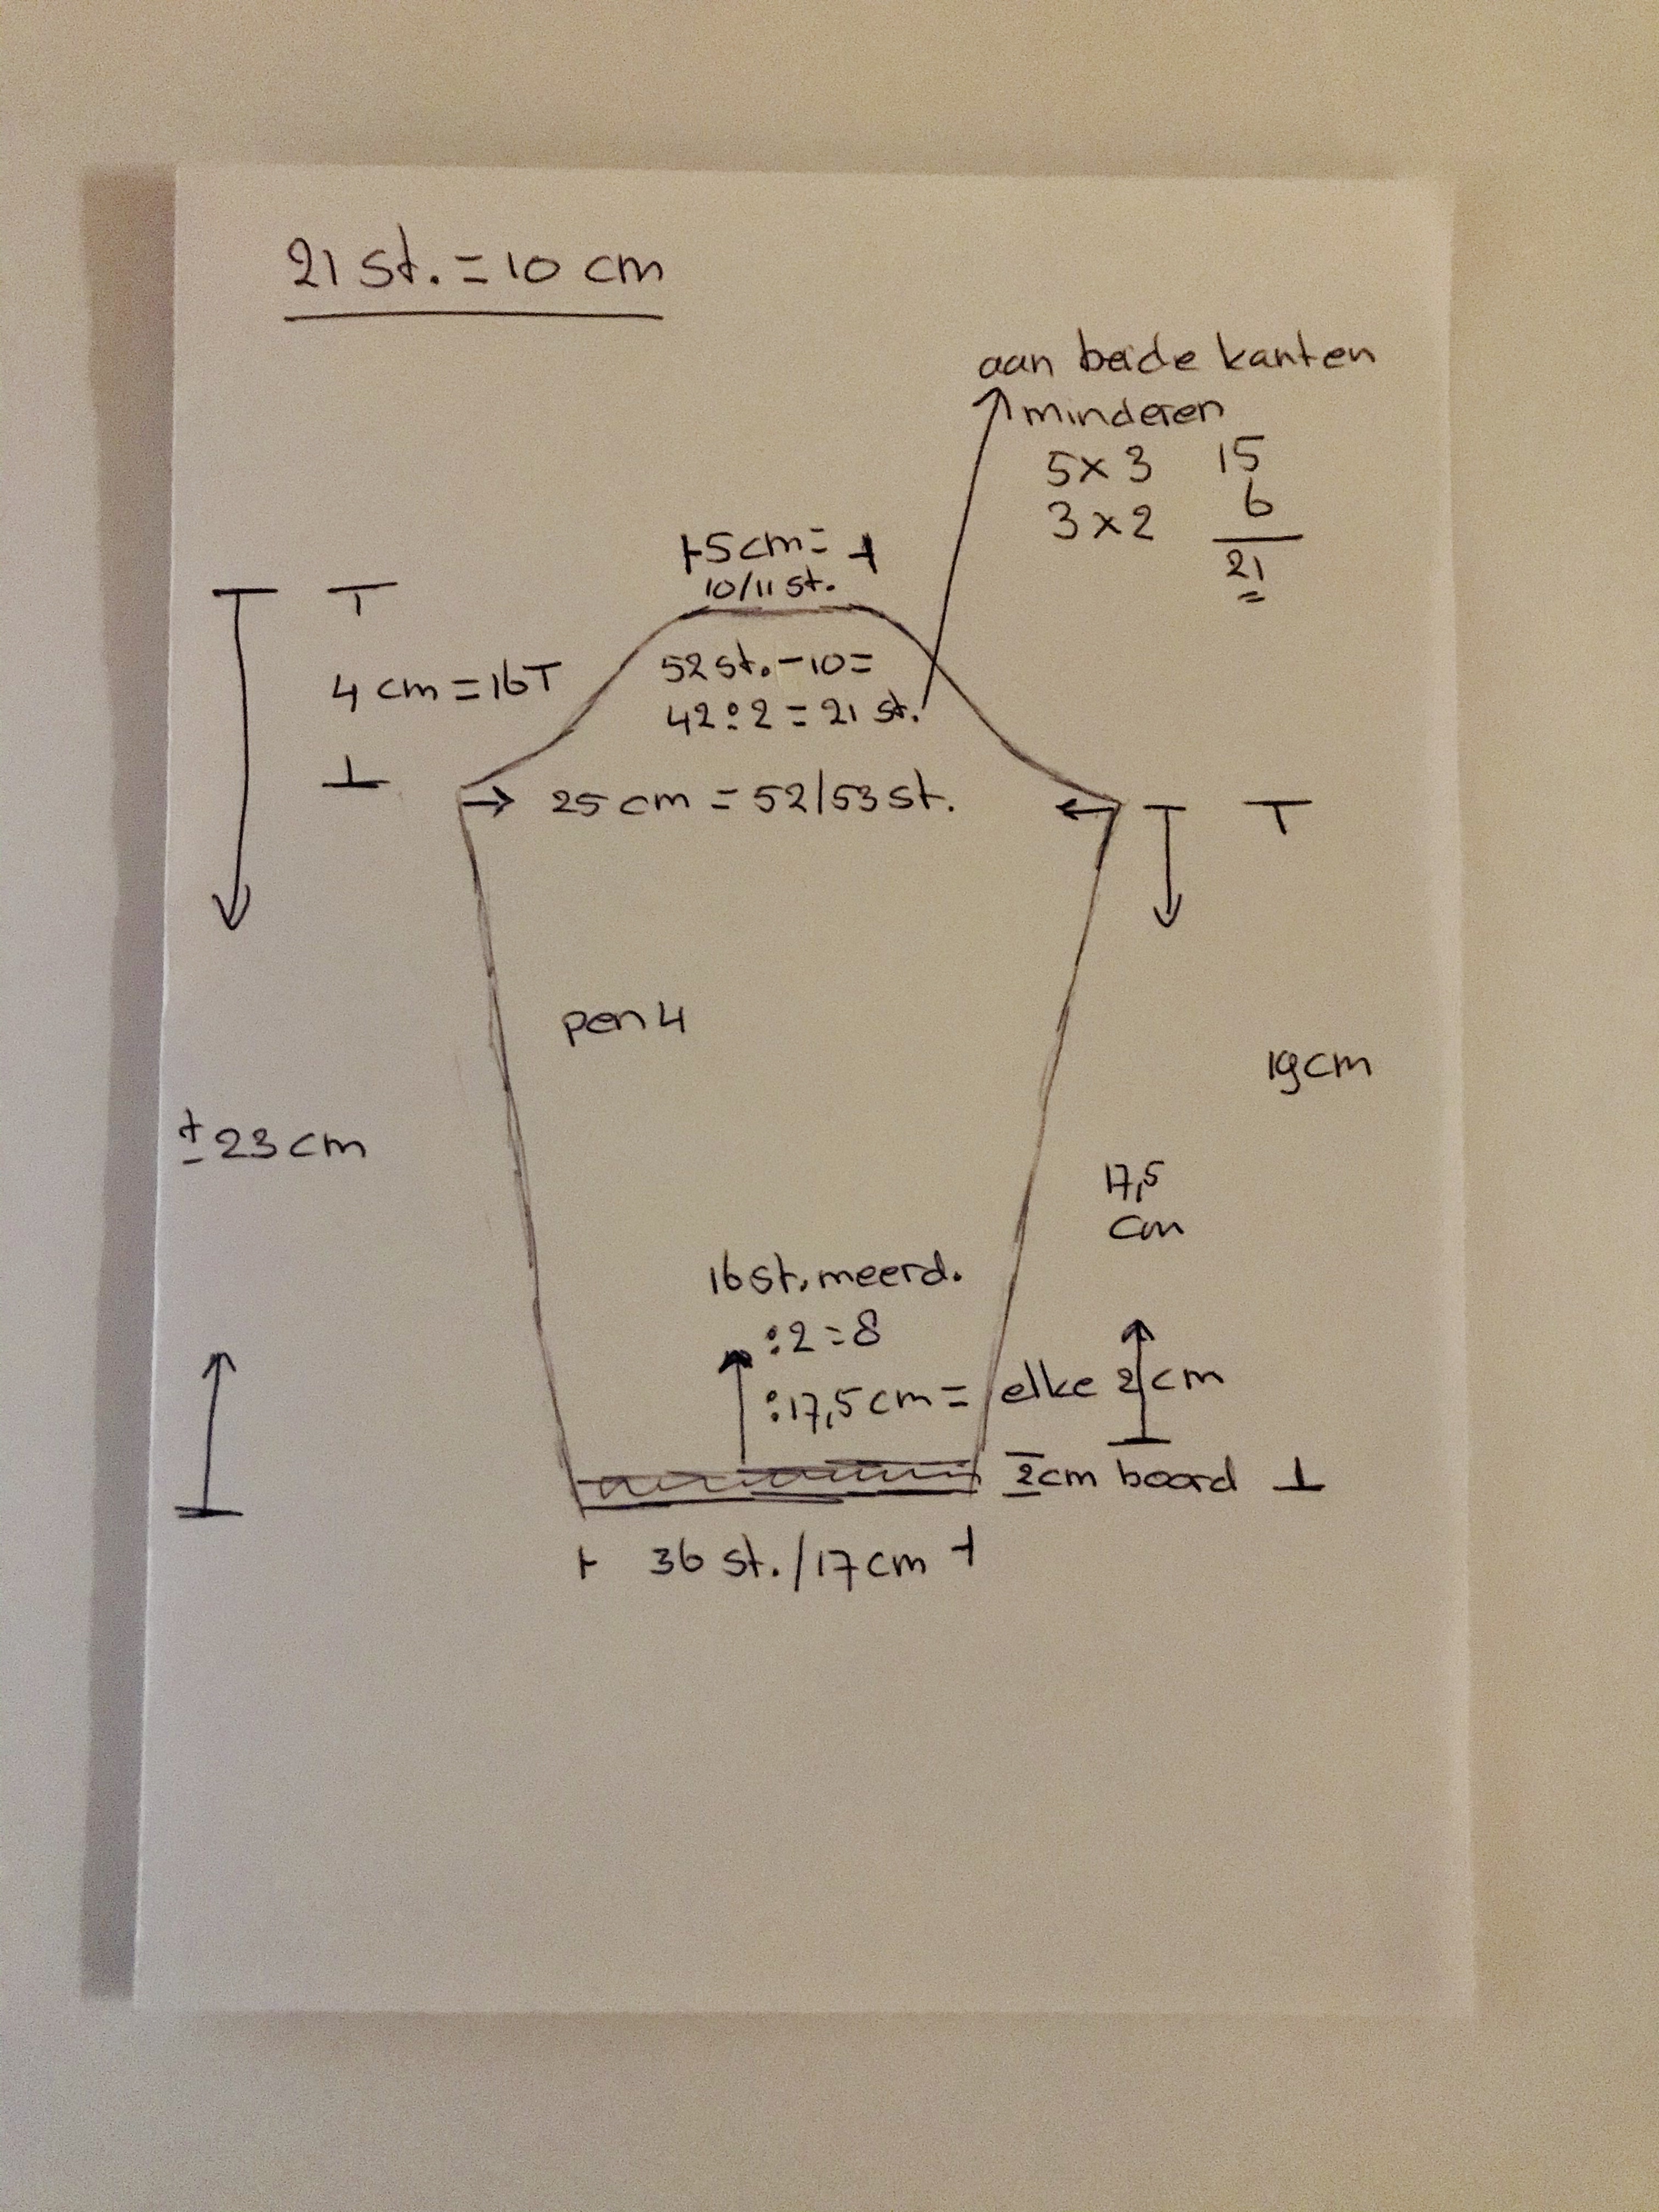 21 st. = 10 cm
aan beide kanten
minderen
5x3 15
3x2 6
21
5 cm =
10/11 st.
4 cm = 16T
52 st. - 10 =
42 : 2 = 21 st.
25 cm = 52/53 st.
pen 4
19 cm
± 23 cm
17,5
cm
16 st. meerd.
: 2 = 8
: 17,5 cm = elke 2 cm
2 cm boord
36 st. / 17 cm